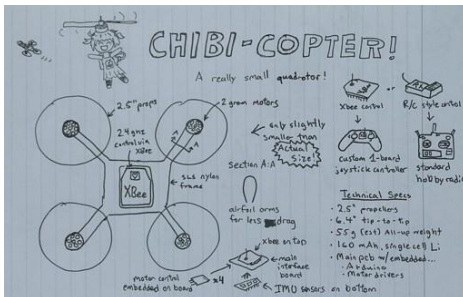 CHIBI-COPTER!
A really small quadrotor!
2.5" props
2 gram motors
2.4 ghz
control via
XBee
XBee
SLS nylon
frame
A
A
only slightly
smaller than
Actual
Size!
Section A:A
airfoil arms
for less drag
xbee on top
main
interface
board
motor control
embedded on board
x4
IMU sensors on bottom
Xbee control
or
R/C style control
custom 1-board
joystick controller
standard
hobby radio
Technical Specs
• 2.5" propellers
• 6.4" tip-to-tip
• 55g (est) All-up weight
• 160 mAh, single cell Li
• Main pcb w/embedded...
- Arduino
- Motor drivers